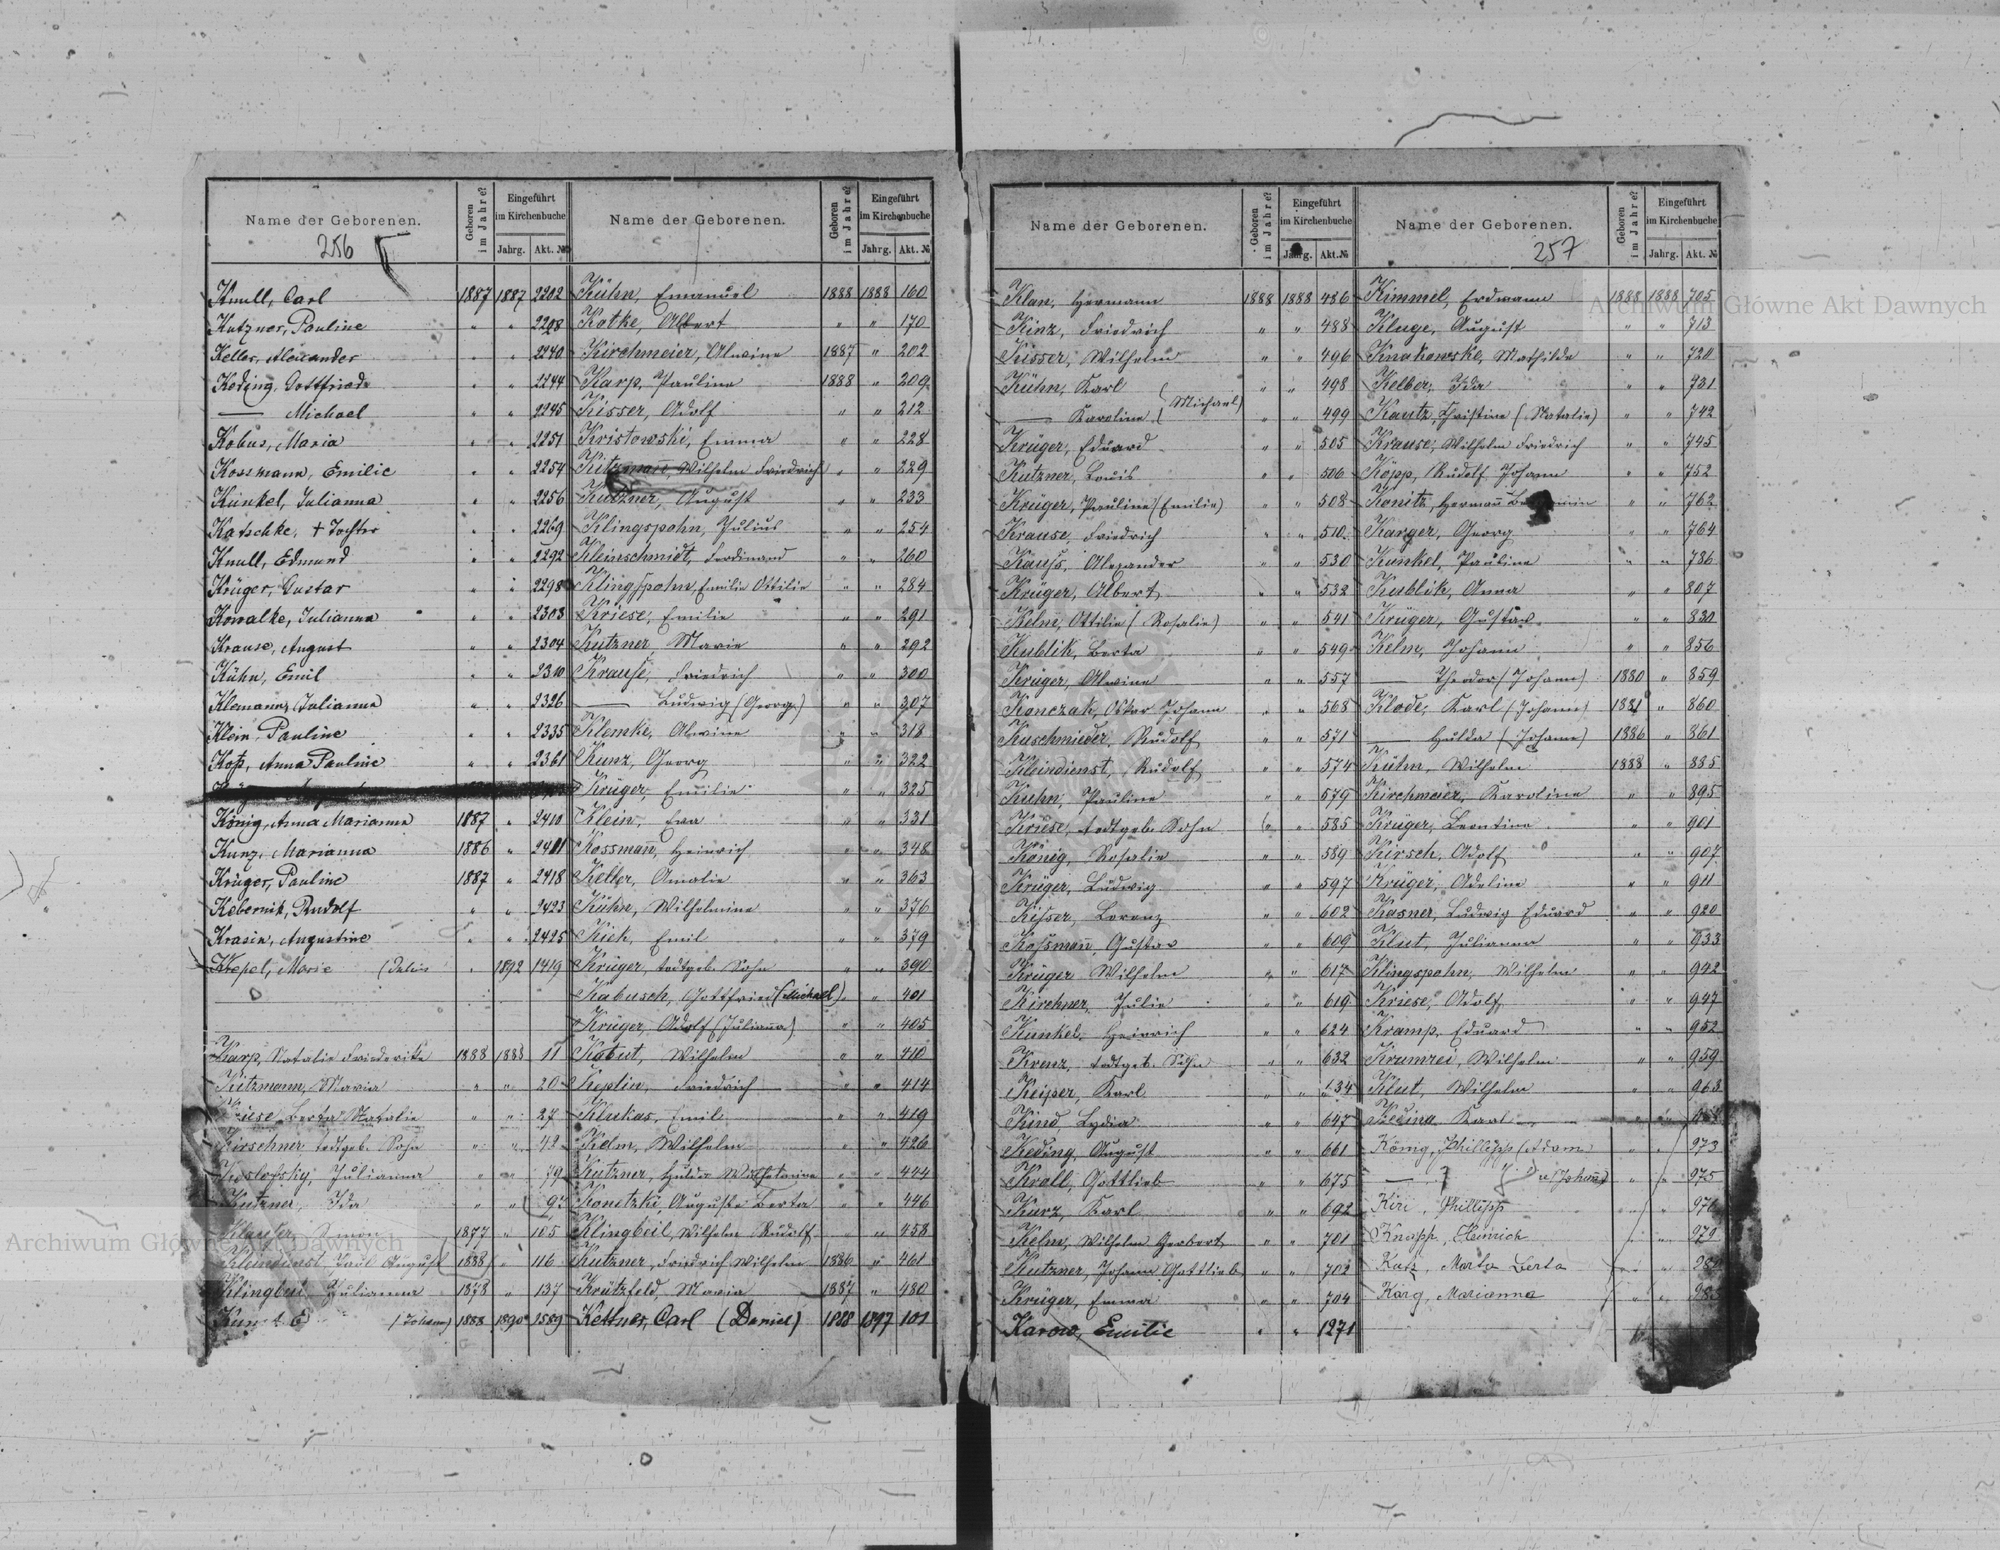 Name der Geborenen. Geboren im Jahre? Eingeführt im Kirchenbuche Jahrg. Akt. №
256
Knull, Carl 1887 1887 2202
Kutzner, Pauline " " 2208
Keller, Alexander " " 2240
Keding, Gottfried " " 2244
— Michael " " 2245
Kobus, Maria " " 2251
Kossmann, Emilie " " 2254
Kunkel, Julianna " " 2256
Katschke, † Tochter " " 2269
Knull, Edmund " " 2292
Krüger, Gustav " " 2298
Kowalke, Julianna " " 2303
Krause, August " " 2304
Kühn, Emil " " 2310
Klemann, Julianna " " 2326
Klein, Pauline " " 2335
Kop, Anna Pauline " " 2361
König, Anna Marianna 1887 " 2410
Kunz, Marianna 1886 " 2411
Krüger, Pauline 1887 " 2418
Kebernik, Rudolf " " 2423
Krasin, Augustine " " 2425
Krepel, Marie (Julius " 1892 1419
Karp, Natalie Friederike 1888 1888 11
Kitzmann, Maria " " 20
Kriese, Berta Natalie " " 27
Kirschner, todtgeb. Sohn " " 42
Koslofsky, Julianna " " 79
Kutzner, Ida " "
1877 " 105
Kleindienst, Paul August 1888 " 116
Klingbeil, Julianna 1878 " 137
(Johann) 1888 1890 1589
Name der Geborenen. Geboren im Jahre? Eingeführt im Kirchenbuche Jahrg. Akt. №
Kühn, Emanuel 1888 1888 160
Katke, Albert " " 170
Kirchmeier, Alwine 1887 " 202
Karp, Pauline 1888 " 209
Kisser, Adolf " " 212
Kristowski, Emma " " 228
Kitzmann, Wilhelm Friedrich " " 229
Kutzner, August " " 233
Klingspohn, Julius " " 254
Kleinschmidt, Ferdinand " " 260
Klingspohn, Emilie Ottilie " " 284
Kriese, Emilie " " 291
Kutzner, Marie " " 292
Krause, Friedrich " " 300
— Ludwig (Georg) " " 307
Klemke, Alwine " " 318
Kunz, Georg " " 322
Krüger, Emilie " " 325
Klein, Eva " " 331
Kossmann, Heinrich " " 348
Keller, Amalie " " 363
Kühn, Wilhelmine " " 376
Kiek, Emil " " 379
Krüger, todtgeb. Sohn " " 390
Kabusch, Gottfried (Michael) " " 401
Krüger, Adolf (Julianna) " " 405
Kabut, Wilhelm " " 410
Keplin, Friedrich " " 414
Klukas, Emil " " 419
Kelm, Wilhelm " " 426
Kutzner, Hulda Wilhelmine " " 444
Konetzki, Auguste Berta " " 446
Klingbeil, Wilhelm Rudolf " " 458
Kutzner, Friedrich Wilhelm 1886 " 461
Krützfeld, Maria 1887 " 480
Kettner, Carl (Daniel) 1888 1897 101
Name der Geborenen. Geboren im Jahre? Eingeführt im Kirchenbuche Jahrg. Akt. №
Klan, Hermann 1888 1888 486
Kinz, Friedrich " " 488
Kisser, Wilhelm " " 496
Kühn, Karl " " 498
(Michael)
— Karoline " " 499
Krüger, Eduard " " 505
Kutzner, Louis " " 506
Krüger, Pauline (Emilie) " " 508
Krause, Friedrich " " 510
Kauss, Alexander " " 530
Krüger, Albert " " 532
Kelm, Ottilie (Rosalie) " " 541
Kublik, Berta " " 549
Krüger, Alwine " " 557
Konczak, Oskar Johann " " 568
Kuschmieder, Rudolf " " 571
Kleindienst, Rudolf " " 574
Kuhn, Pauline " " 579
Kriese, todtgeb. Sohn " " 585
König, Rosalie " " 589
Krüger, Ludwig " " 597
Kisser, Lorenz " " 602
Kossmann, Gustav " " 609
Krüger, Wilhelm " " 617
Kirchner, Julie " " 619
Kunkel, Heinrich " " 624
Krenz, todtgeb. Sohn " " 632
Keiper, Karl " " 634
Kind, Lydia " " 647
Keding, August " " 661
Krall, Gottlieb " " 675
Kurz, Karl " " 692
Kelm, Wilhelm Herbert " " 701
Kutzner, Johann Gottlieb " " 702
Krüger, Emma " " 704
Karow, Emilie " " 1271
Name der Geborenen. Geboren im Jahre? Eingeführt im Kirchenbuche Jahrg. Akt. №
257
Kimmel, Erdmann 1888 1888 705
Kluge, August " " 713
Knakowske, Mathilde " " 720
Kelber, Ida " " 731
Kautz, Christine (Natalie) " " 742
Krause, Wilhelm Friedrich " " 745
Köpp, Rudolf Johann " " 752
Konitz, Hermann " " 762
Karger, Georg " " 764
Kunkel, Pauline " " 786
Kublik, Anna " " 807
Krüger, Gustav " " 830
Kelm, Johann " " 856
— Theodor (Johann) 1880 " 859
Klode, Karl (Johann) 1881 " 860
— Hulda (Johann) 1886 " 861
Kühn, Wilhelm 1888 " 885
Kirchmeier, Karoline " " 895
Krüger, Leontine " " 901
Kirsch, Adolf " " 907
Krüger, Adeline " " 911
Kasner, Ludwig Eduard " " 920
Klut, Julianna " " 933
Klingspohn, Wilhelm " " 942
Kriese, Adolf " " 947
Kramp, Eduard " " 952
Krumrei, Wilhelm " " 959
Klut, Wilhelm " " 963
Keding, Karl " "
König, Phillipp (Adam " " 973
— (Johann) " " 975
Kiri, Phillipp " "
Knapp, Heinrich " 979
Kutz, Marta Berta
Karg, Marianna
Archiwum Główne Akt Dawnych
Archiwum Główne Akt Dawnych